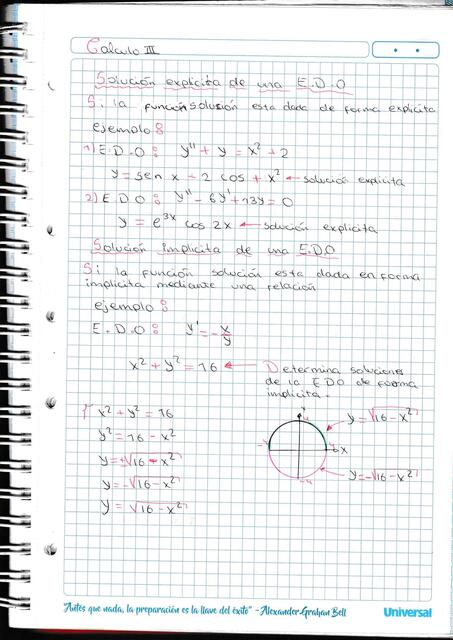 Calculo III
Solución explicita de una E.D.O
Si la función solución esta dada de forma explicita
ejemplo:
1) E.D.O: y'' + y = x² + 2
y = sen x - 2 cos + x² ← solución explicita
2) E.D.O: y'' - 6y' + 13y = 0
y = e³ˣ cos 2x ← solución explicita
Solución implicita de una E.D.O
Si la función solución esta dada en forma
implicita mediante una relación
ejemplo:
E.D.O: y' = -x/y
x² + y² = 16 ← Determina soluciones
de la EDO de forma
implicita.
x² + y² = 16
y² = 16 - x²
y = ±√16 - x²
y = -√16 - x²
y = √16 - x²
y
4
y = √16 - x²
-4
4
x
-4
y = -√16 - x²
"Antes que nada, la preparación es la llave del éxito" - Alexander Graham Bell
Universal